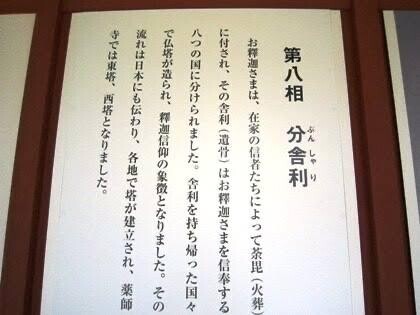 第八相 分舎利
ぶん しゃ り
お釋迦さまは、在家の信者たちによって荼毘(火葬)
に付され、その舎利(遺骨)はお釋迦さまを信奉する
八つの国に分けられました。舎利を持ち帰った国々
で仏塔が造られ、釋迦信仰の象徴となりました。その
流れは日本にも伝わり、各地で塔が建立され、薬師
寺では東塔、西塔となりました。